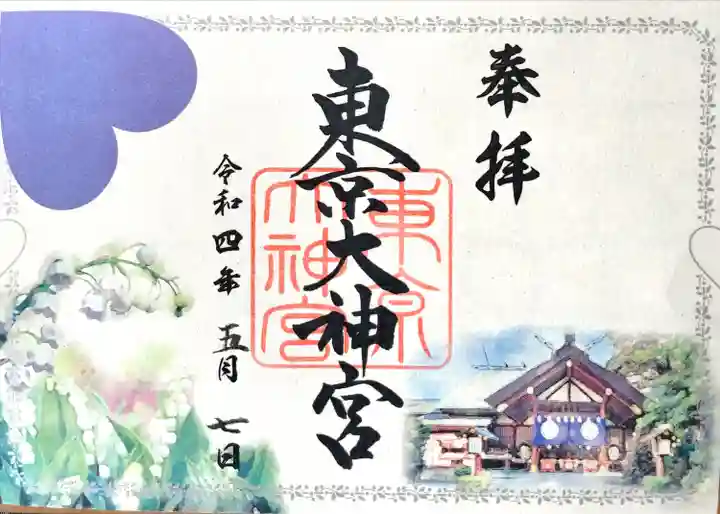 奉拝
東京大神宮
東京大神宮
令和四年 五月 七日